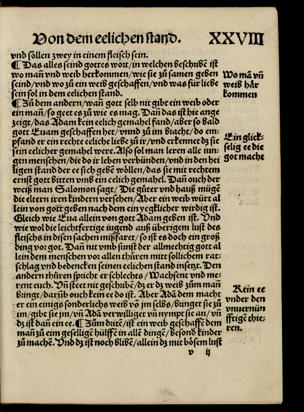 Von dem eelichen stand. XXVIII
vnd sollen zwey in einem fleisch sein.
¶ Das alles seind gottes wort, in welchen beschribē ist
wo man vnd weib herkommen, wie sie zů samen geben
seind, vnd wo zů ein weib geschaffen, vnd was für liebe
sein sol in dem eelichen stand.
Wo mā vn̄
weib hār
kommen
¶ Zů dem andern, wan got selb nit gibt ein weib oder
ein man, so geet es zů wie es mag. Dan das ist hie ange
zeigt, das Adam kein eelich gemahel fand, aber so bald
got Euam geschaffen het, vnnd zů im bracht, do em⸗
pfand er ein rechte eeliche liebe zů ir, vnd erkennet dz sie
sein eelicher gemahel were. Also sol man leren alle iun
gen menschen, die do ir leben verbünden, vnd in den hei
ligen stand der ee sich gebē wöllen, das sie mit rechtem
ernst got bitten vmb ein eelich gemahel. Dan ouch der
weiß man Salomon sagt, Die gůter vnd hauß müge
die eltern iren kindern versehen, Aber ein weib würt al
lein von got geben nach dem ein yeglicher wirdig ist.
Ein glück⸗
selig ee die
got macht
Gleich wie Eua allein von got Adam geben ist. Vnd
wie wol die leichtfertige iugend auß überigem lust des
fleischs in disen sachen mißfaret, so ist es doch ein groß
ding vor got. Dan nit vmb sunst der almechtig got al
lein dem menschen vor allen thüren mitt sollichem rat⸗
schlag vnd bedencken seinen eelichen stand insetzt. Den
andern thüren spricht er schlechts, Wachsent vnd mer
rent euch. Vn̄ steet nit geschribē, dz er dz weib zům man
bringt, darūb ouch kein ee do ist. Aber Adā dem macht
er ein einigs sonderlichs weib vō im selbs, bringt sie zů
im, gibt sie im, vn̄ Adā verwilliget vn̄ nympt sie an, vn̄
dz ist dan ein ee. ¶ Zům dritē, ist ein weib geschaffē dem
man zů eim geselligē hülffe in allē dingē, besond kinder
zů machē. Vnd dz ist noch blibē, allein dz mit bösem lust
Kein ee
vnder den
vnuernün
fftigē thie⸗
ren.
v ij